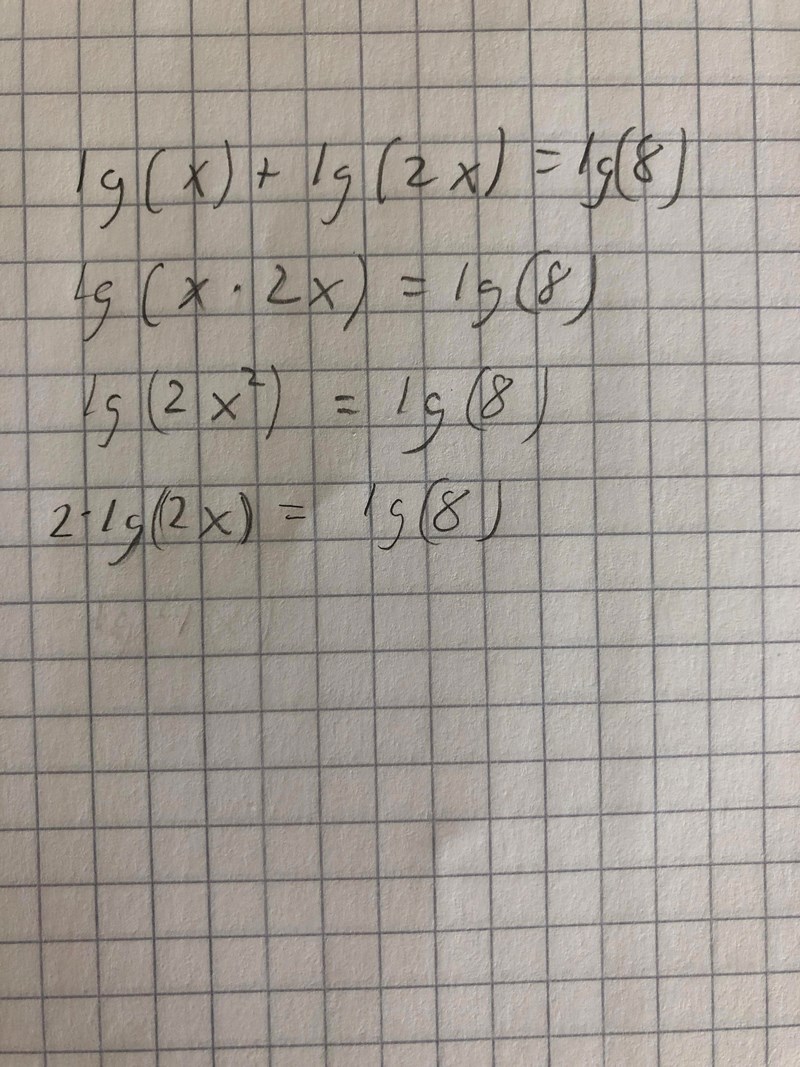 lg(x) + lg(2x) = lg(8)
lg(x · 2x) = lg(8)
lg(2x²) = lg(8)
2·lg(2x) = lg(8)